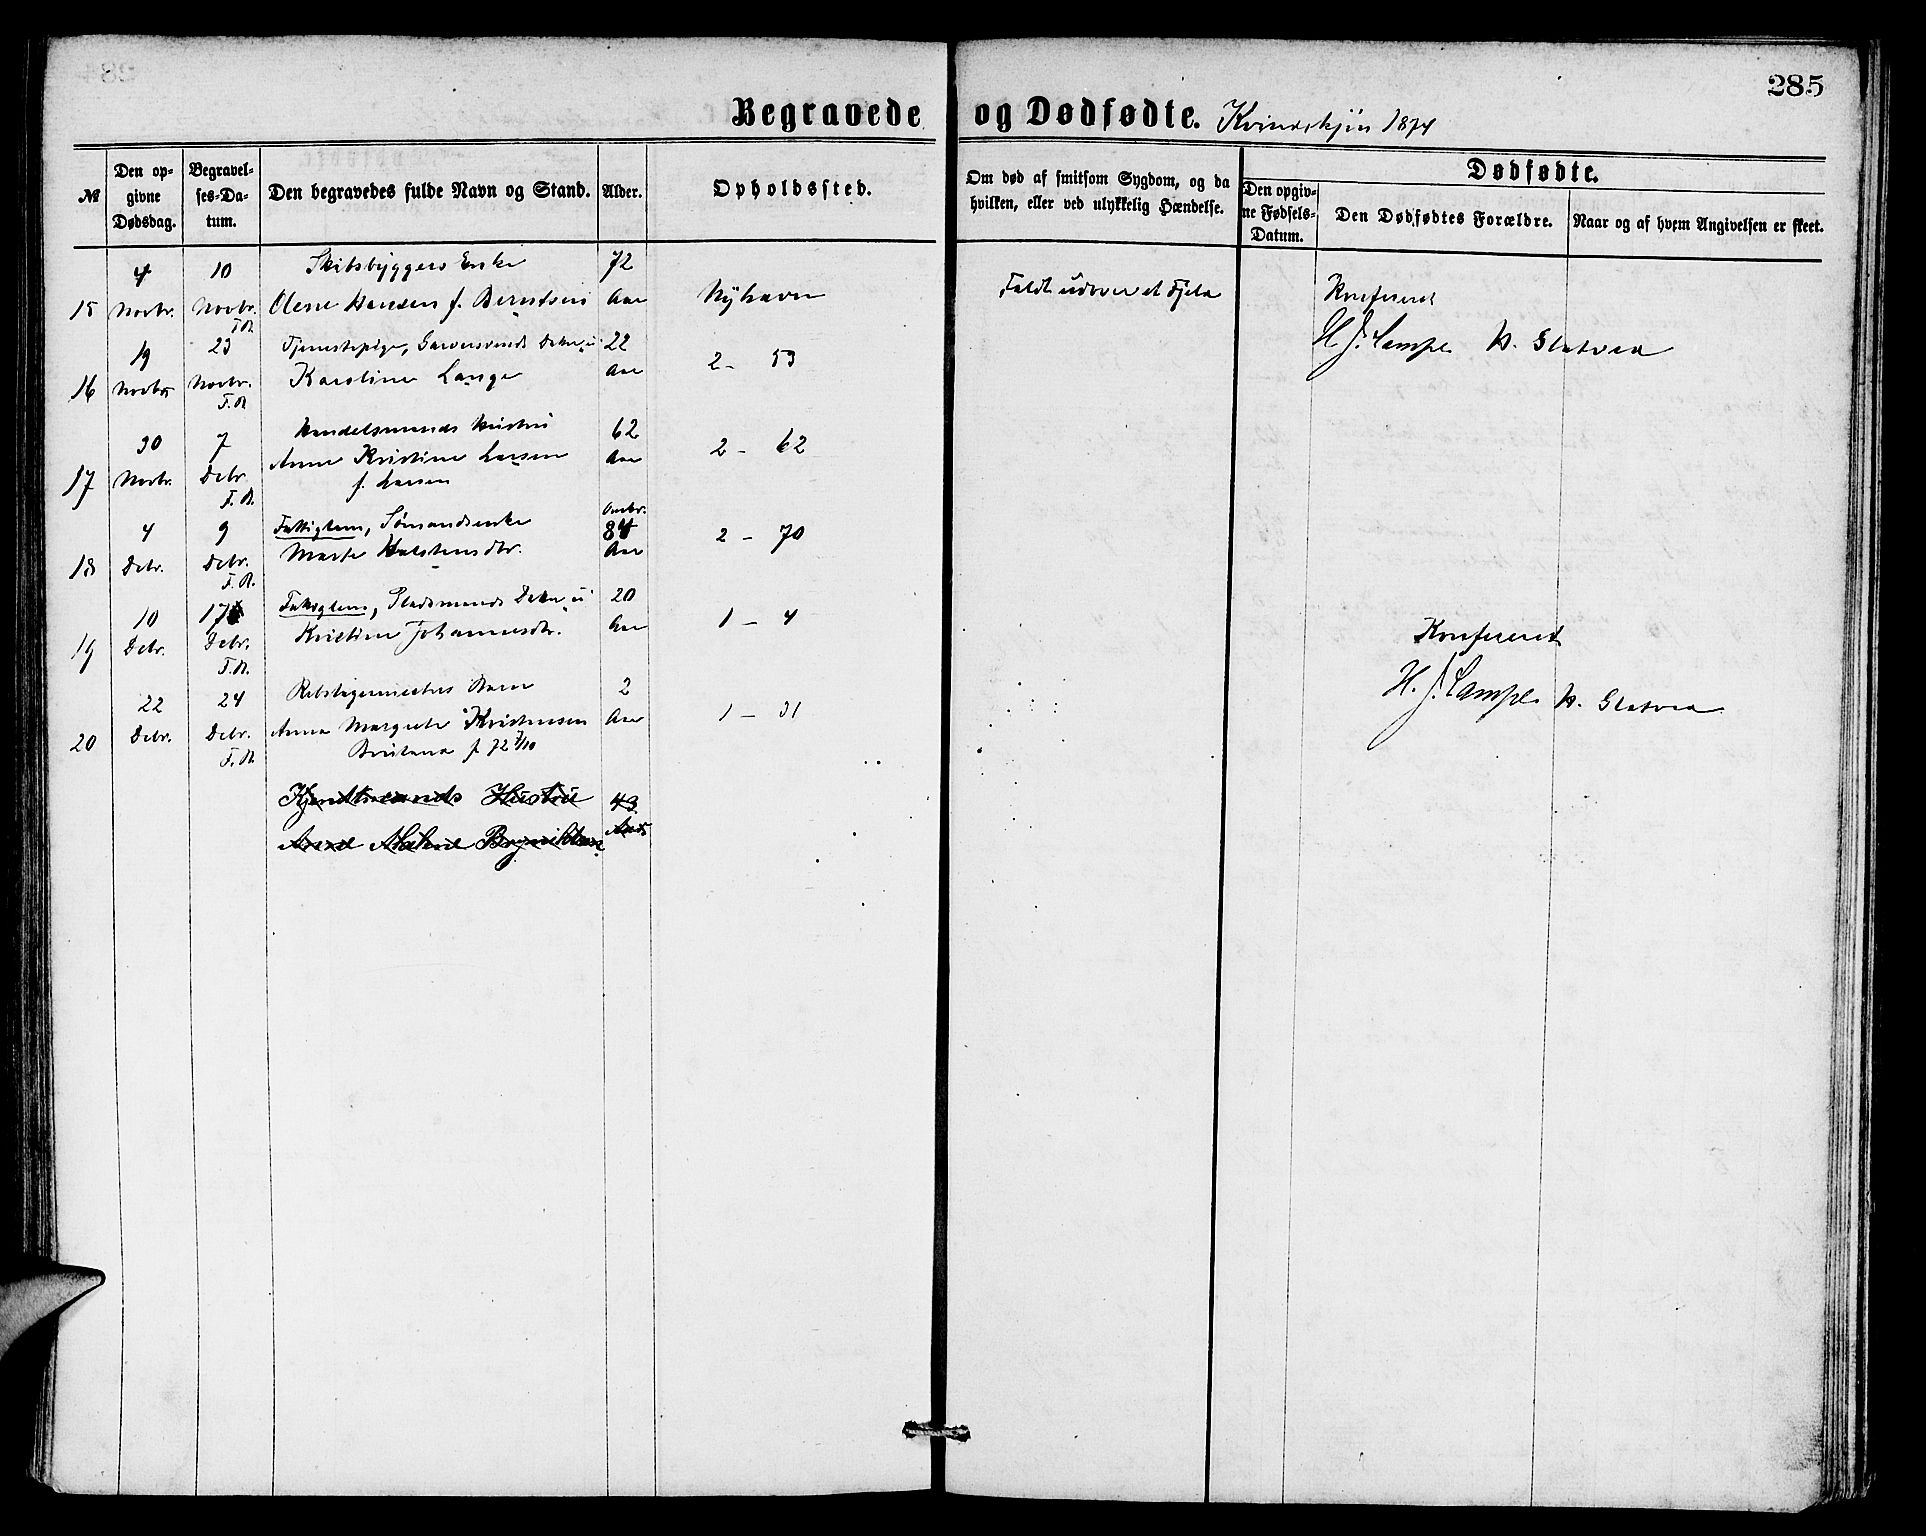 285
Begravede og Dødfødte. Kvindekjøn 1874
№
Den op-
givne
Dødsdag.
Begravel-
ses-Da-
tum.
Den begravedes fulde Navn og Stand.
Alder.
Opholdssted.
Om død af smitsom Sygdom, og da
hvilken, eller ved ulykkelig Hændelse.
Dødfødte.
Den opgiv-
ne Fødsels-
Datum.
Den Dødfødtes Forældre.
Naar og af hvem Angivelsen er skeet.
4 10 Skibsbyggers Enke 72
15 Novbr. Novbr. Olene Hansen f. Berntsen Aar Nyhavn Faldt udover et Fjeld Konfereret
F.R.
H. J. Lampe N. Sletved
19 23 Tjenestepige, Garversvends Datter 22
16 Novbr Novbr. Karoline Lange Aar 2 - 53
F.R.
30 7 Handelsmands Hustru 62
Anne Kristine Larsen Aar 2 - 62
17 Novbr. Debr. f. Larsen
F.R.
4 9 Fattiglem, Sømandsenke 84
18 Debr. Debr. Marte Halstensdtr. Aar 2 - 70
F.R.
10 17 Fattiglem, Pladsmands Datter 20
19 Debr. Debr. Kristine Johannesdtr. Aar 1 - 4 Konfereret
F.R.
H. J. Lampe N. Sletved
22 24 Rebslagermesters Barn 2
20 Debr. Debr. Anna Margrete Kristensen Aar 1 - 31
F.R. f. 72 7/10
Kjendtmands Hustru 43
Anne Malene Aar